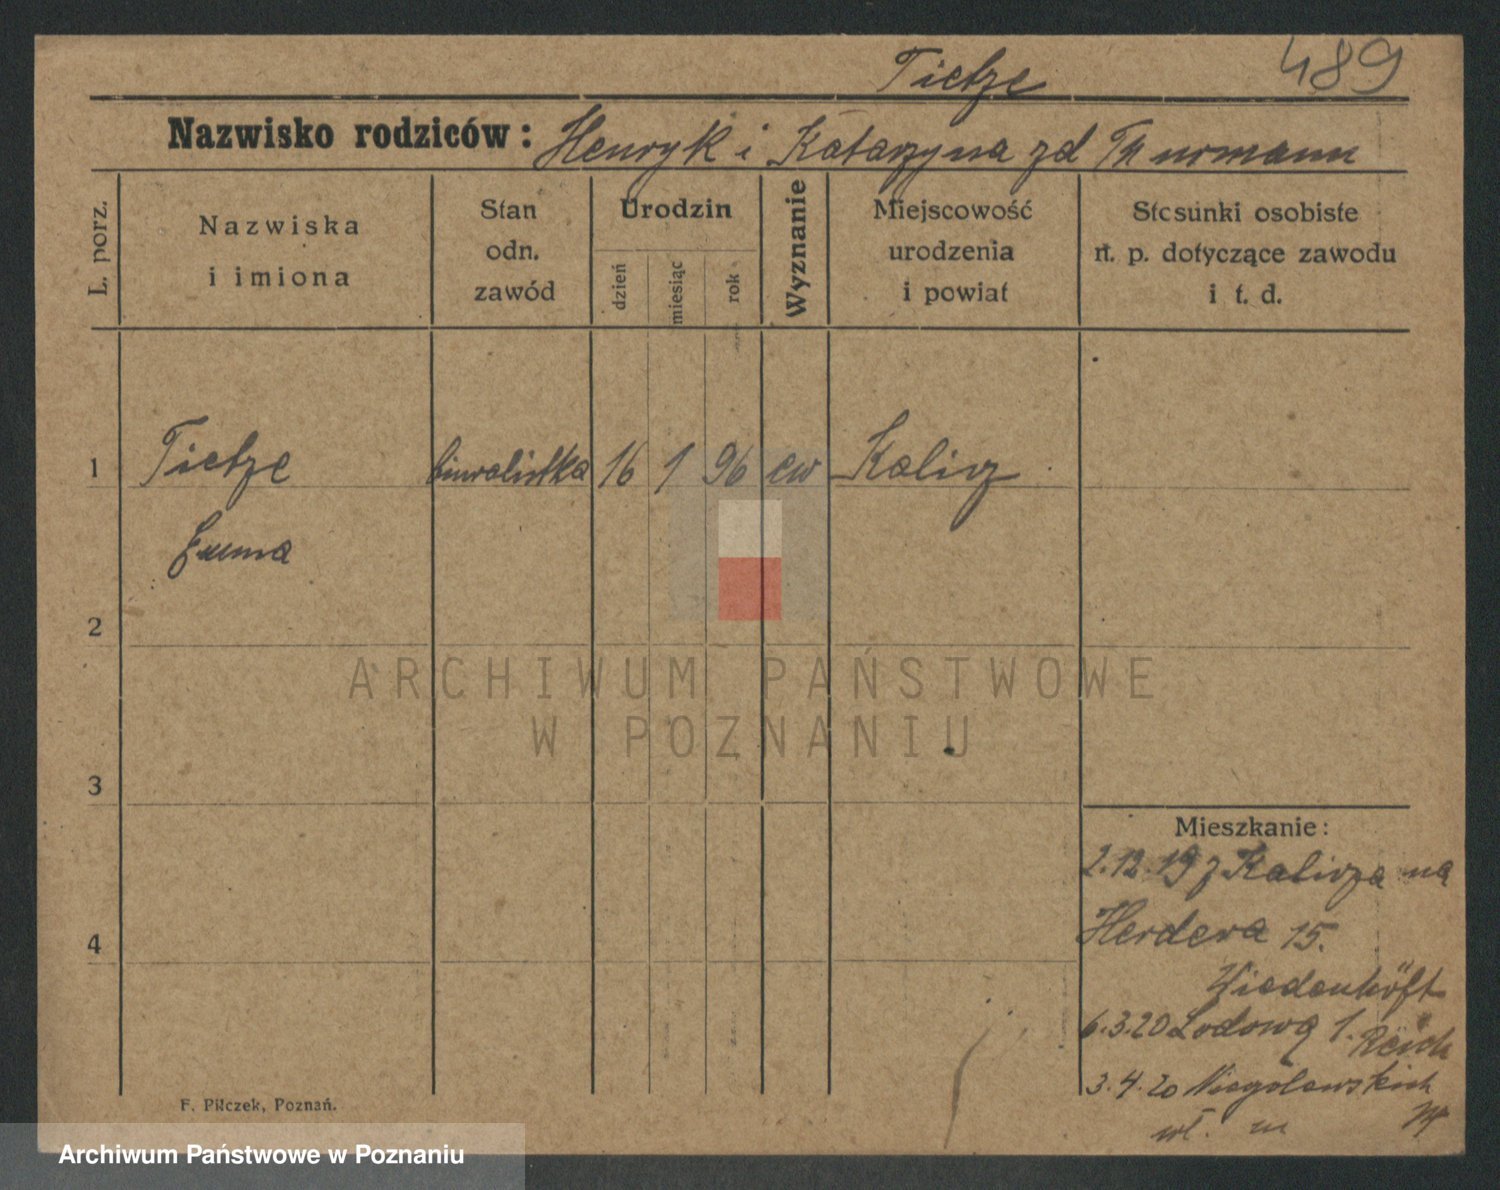 Tietze 489
Nazwisko rodziców: Henryk i Katarzyna zd Thurmann
L. porz.
Nazwiska
i imiona
Stan
odn.
zawód
Urodzin
dzień
miesiąc
rok
Wyznanie
Miejscowość
urodzenia
i powiat
Stosunki osobiste
n. p. dotyczące zawodu
i t. d.
1 Tietze biuralistka 16 1 96 ew Kalisz
Emma
2
3
4
Mieszkanie:
2.12.19 z Kalisza na
Herdera 15.
Wiedenhöft
6.3.20 Lodowa 1. Reich
3.4.20 Niegolewskich
wł. m
F. Pilczek, Poznań.
ARCHIWUM PAŃSTWOWE
W POZNANIU
Archiwum Państwowe w Poznaniu